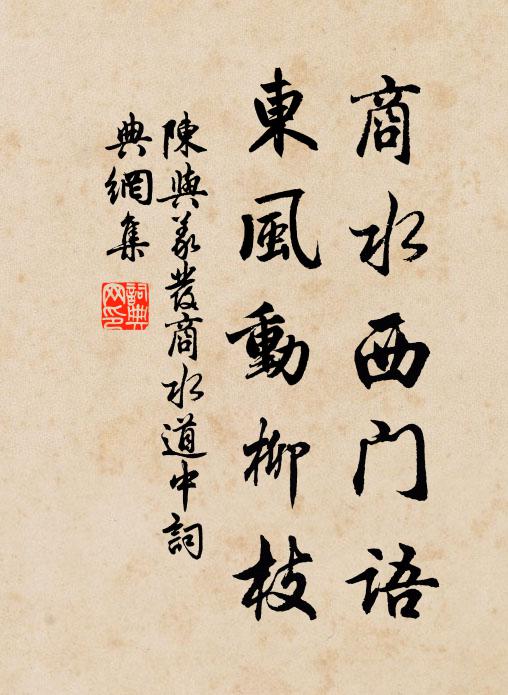 商水西门语
東風動柳枝
陳與義發商水道中詞
典網集
詞典网印